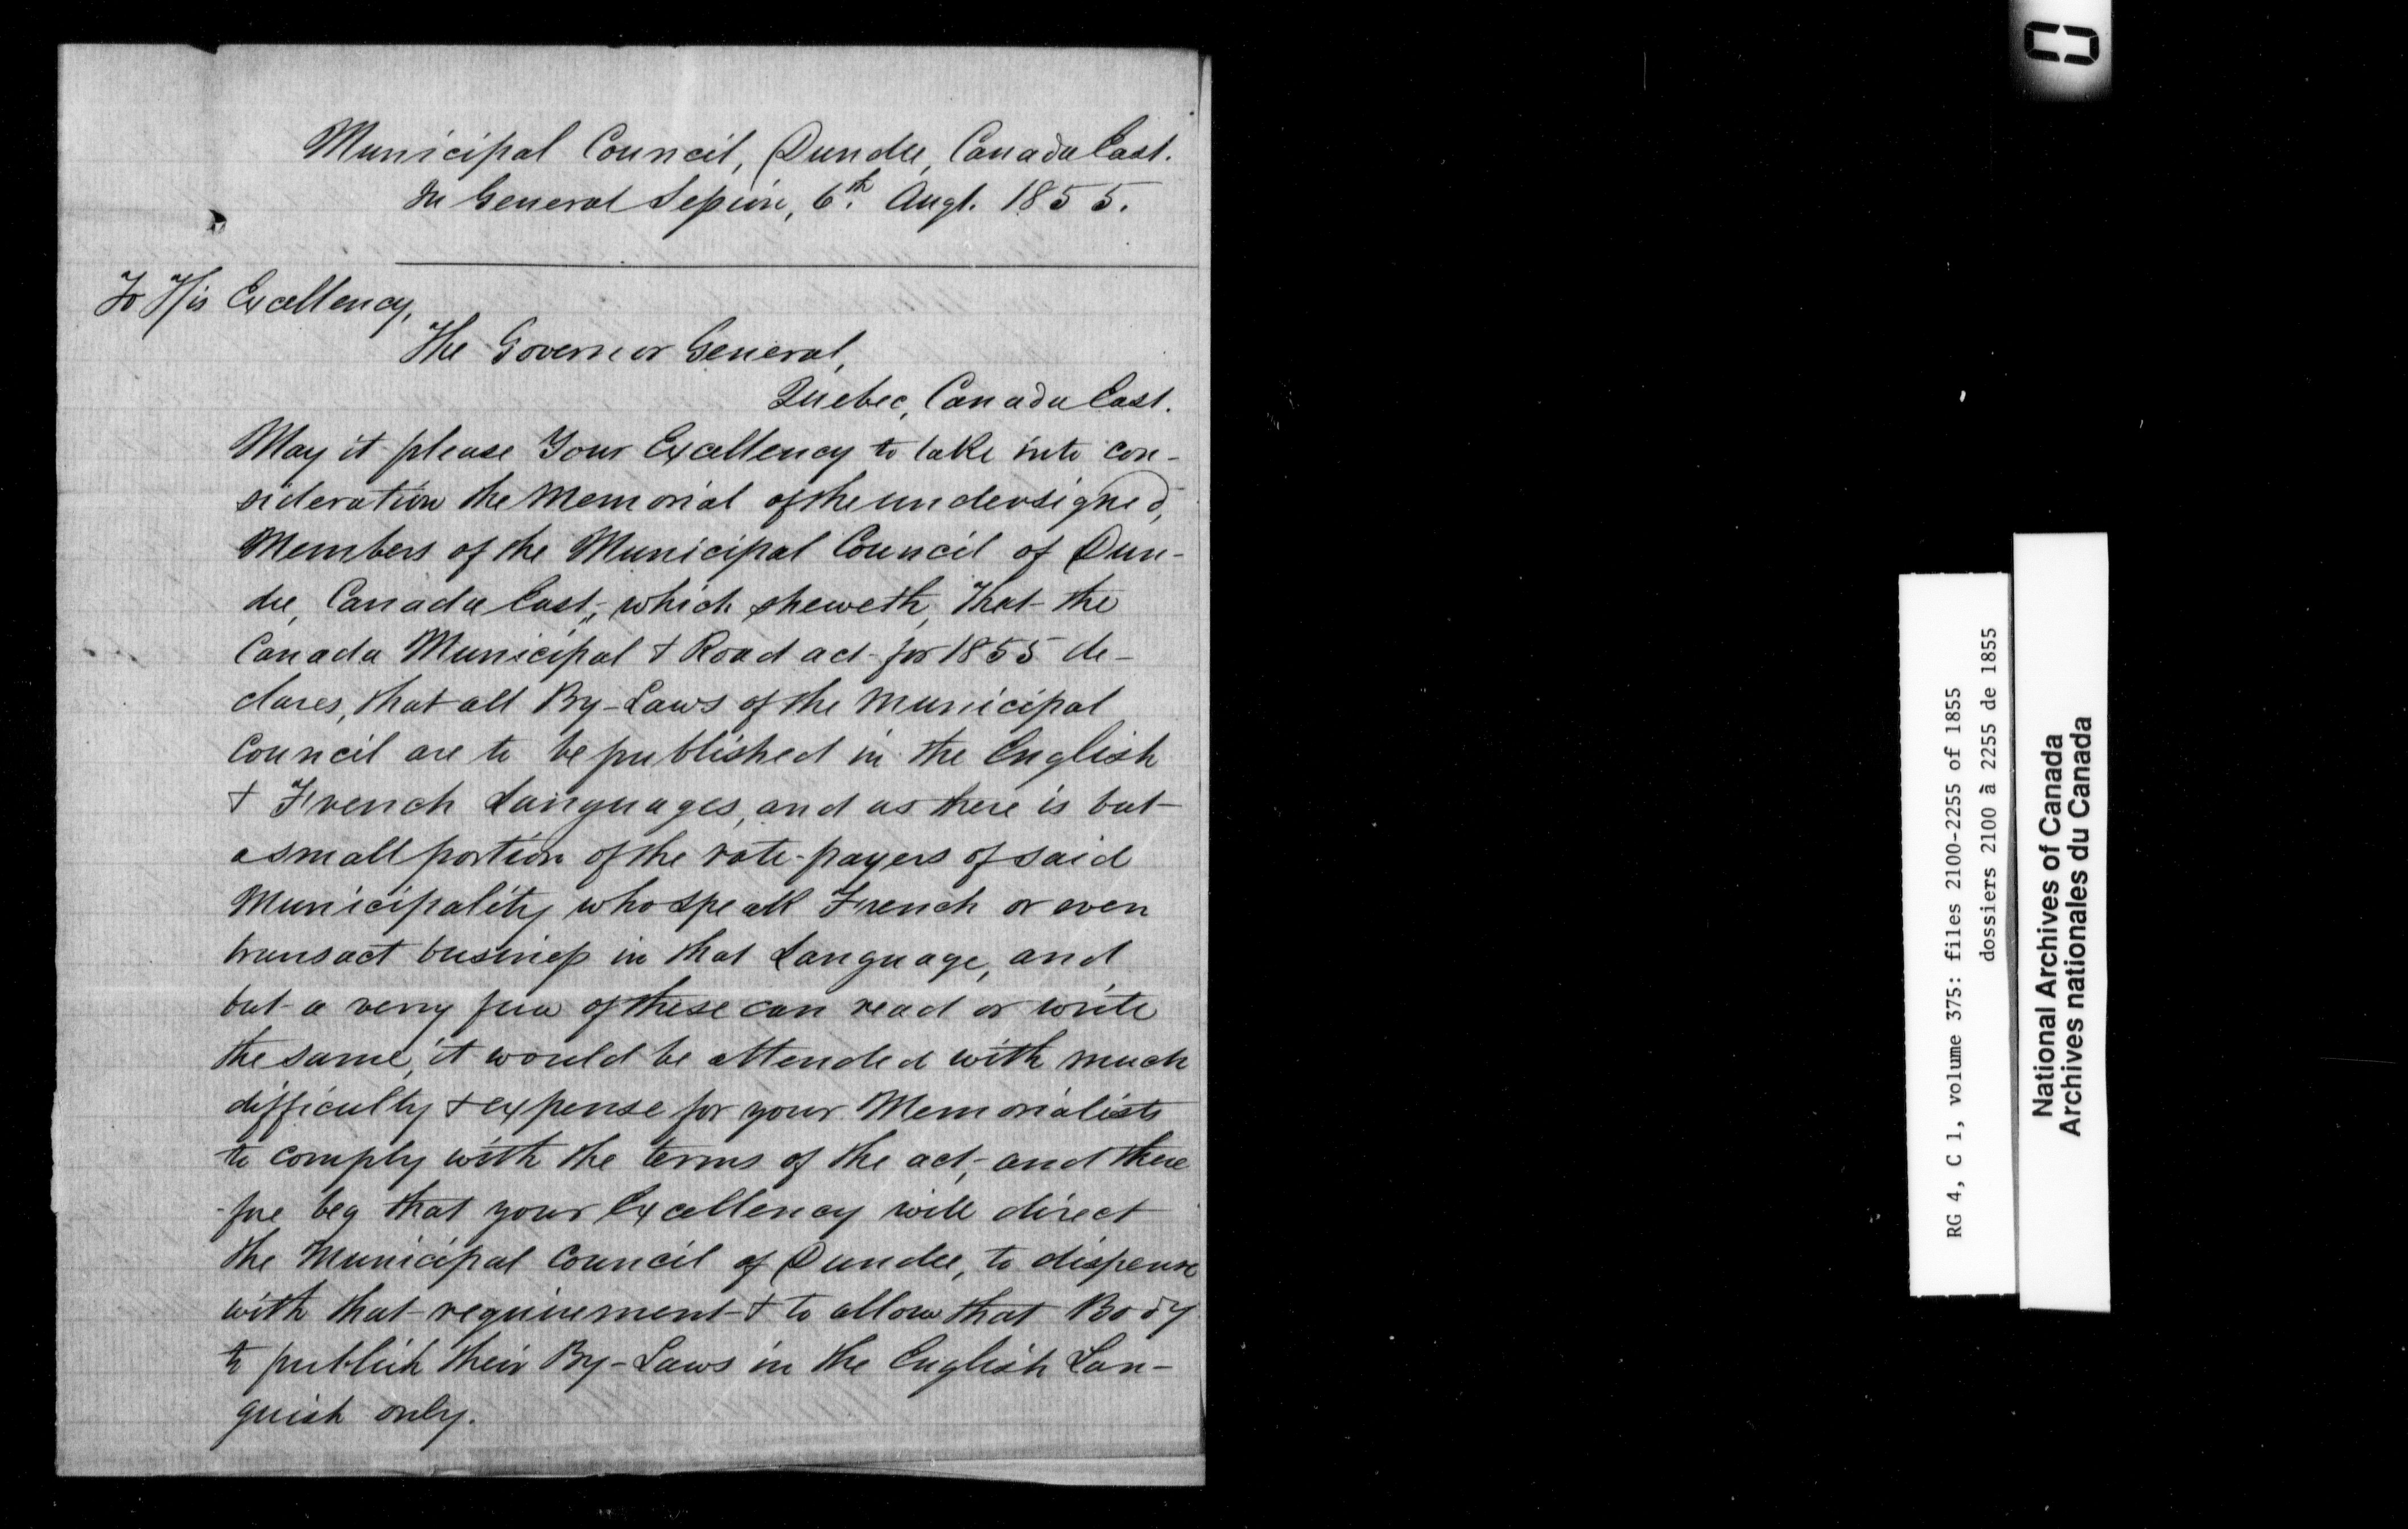 Municipal Council, Dundee, Canada East.
In General Session, 6th. Augt. 1855.
To His Excellency,
The Governor General,
Quebec, Canada East.
May it please Your Excellency to take into con-
sideration the Memorial of the undersigned,
Members of the Municipal Council of Dun-
dee, Canada East, which sheweth, That the
Canada Municipal & Road act for 1855 de-
clares, that all By-Laws of the Municipal
Council are to be published in the English
& French Languages, and as there is but
a small portion of the rate-payers of said
Municipality who speak French or even
transact business in that Language, and
but a very few of these can read or write
the same, it would be attended with much
difficulty & expense for your Memorialists
to comply with the terms of the act, and there
-fore beg that your Excellency will direct
the Municipal Council of Dundee, to dispense
with that requirement & to allow that Body
to publish their By-Laws in the English Lan-
guish only.
RG 4, C 1, volume 375: files 2100-2255 of 1855
dossiers 2100 à 2255 de 1855
National Archives of Canada
Archives nationales du Canada